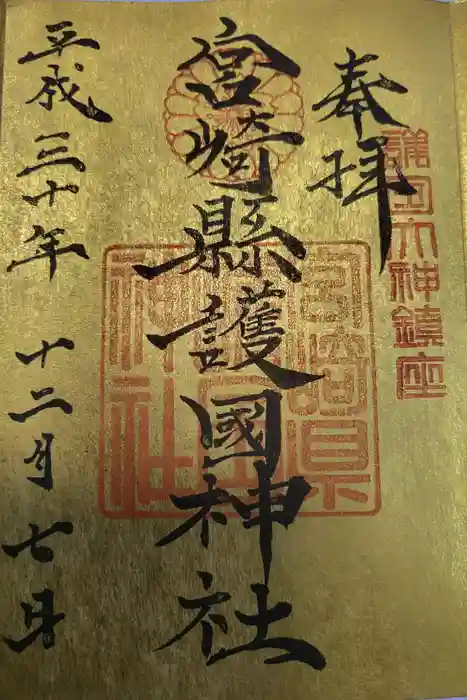 奉拝
護国大神鎮座
宮崎縣護國神社
宮崎県護国神社
平成三十年十二月七日